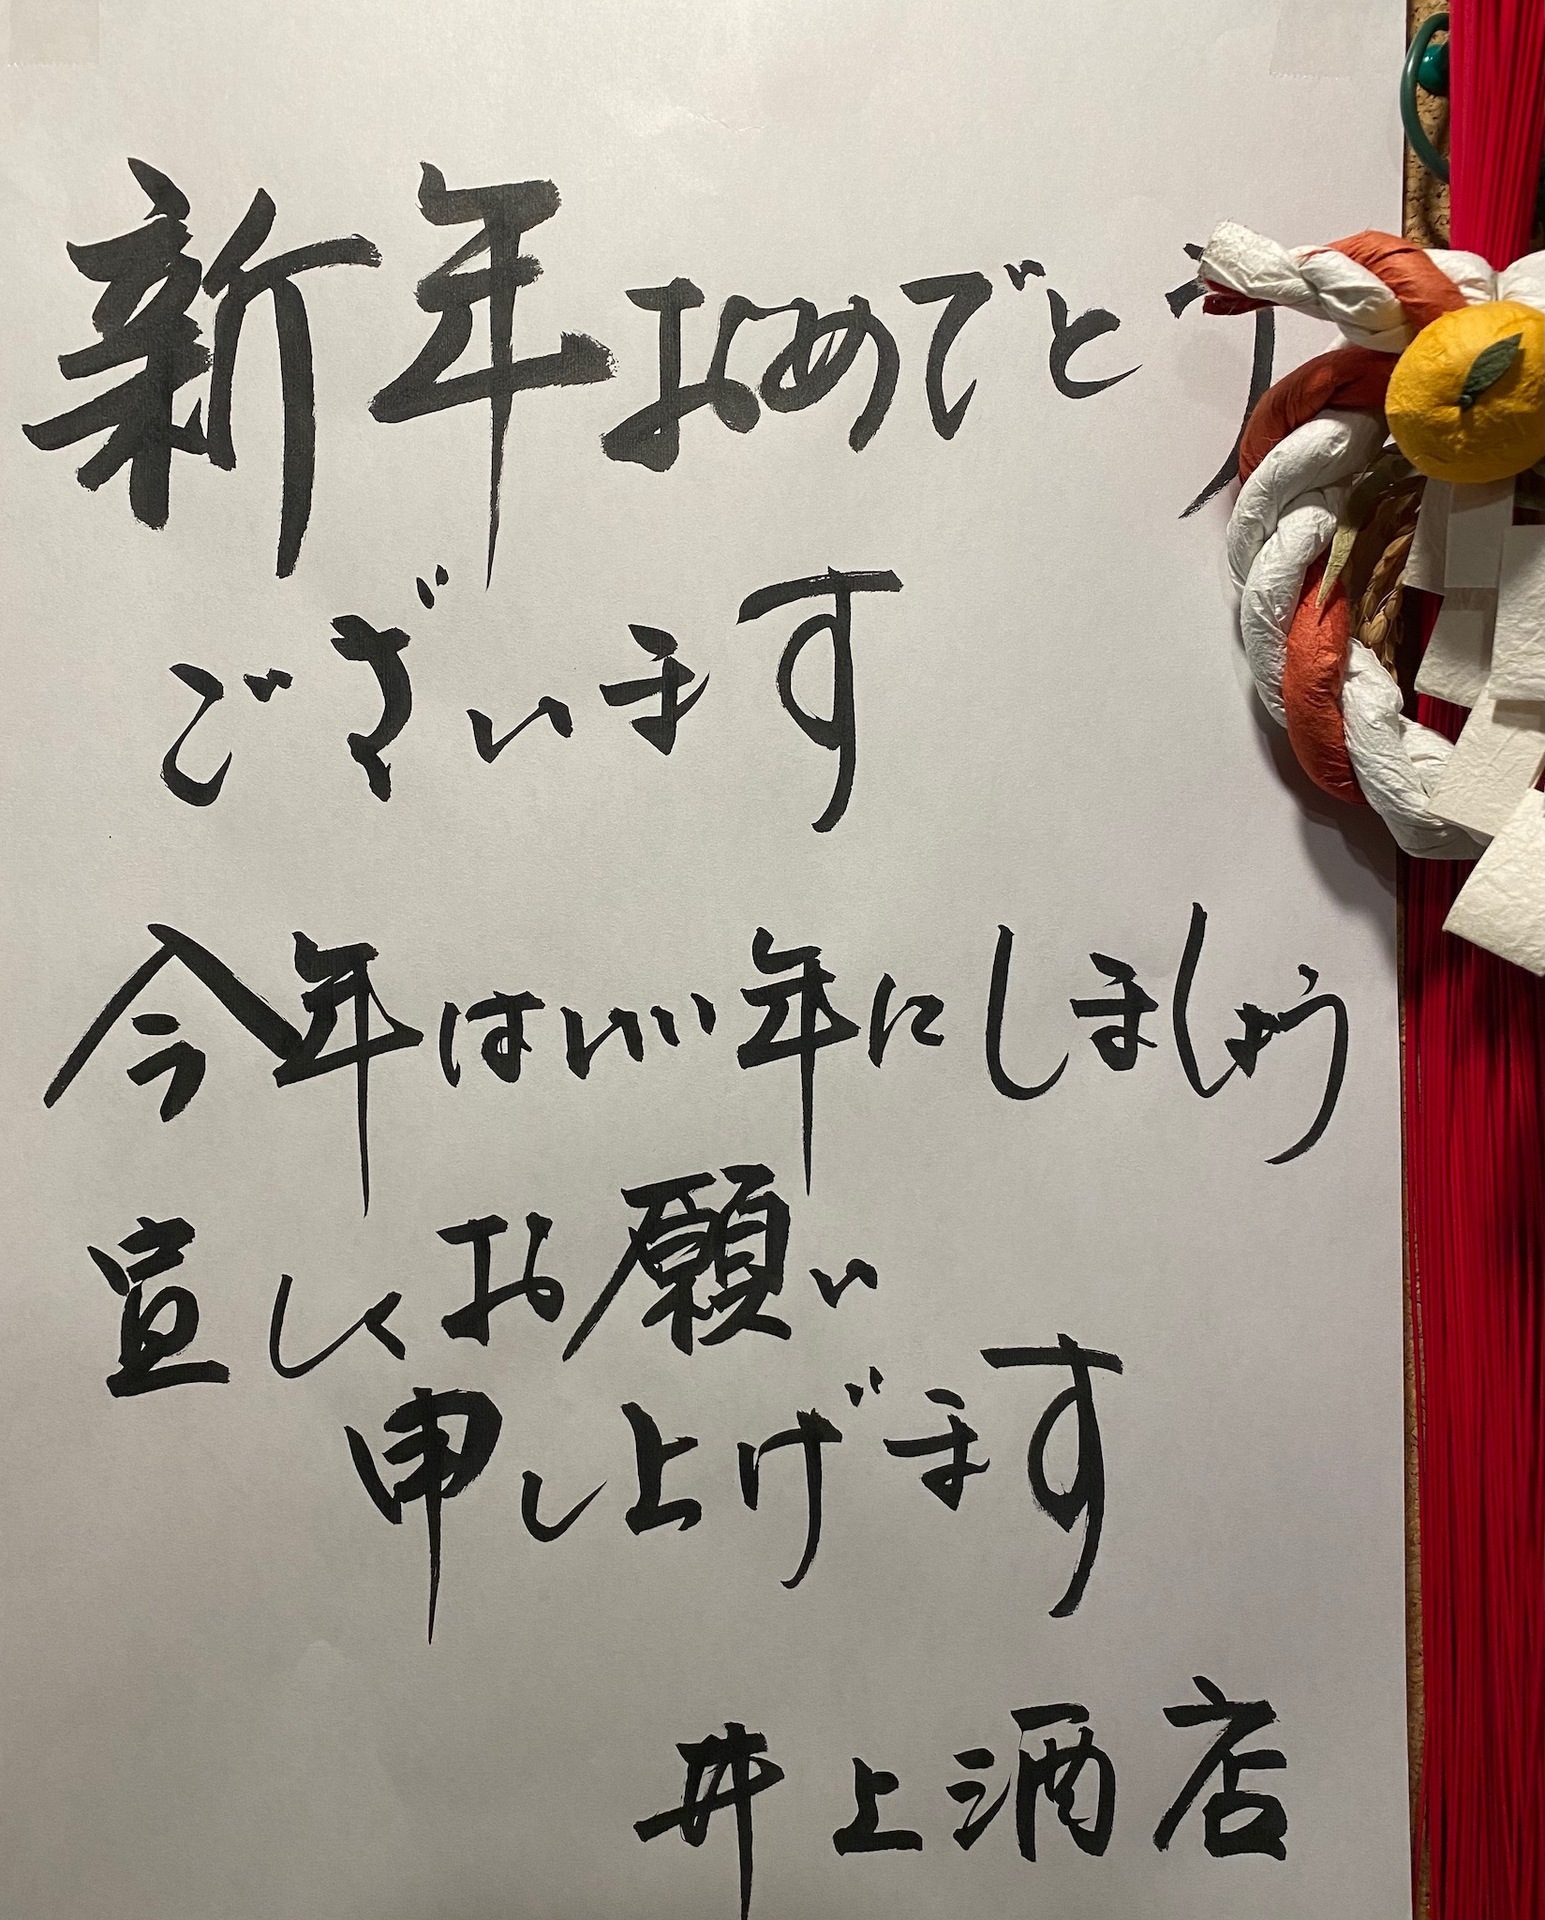 新年おめでとう
ございます
今年はいい年にしましょう
宜しくお願い
申し上げます
井上酒店